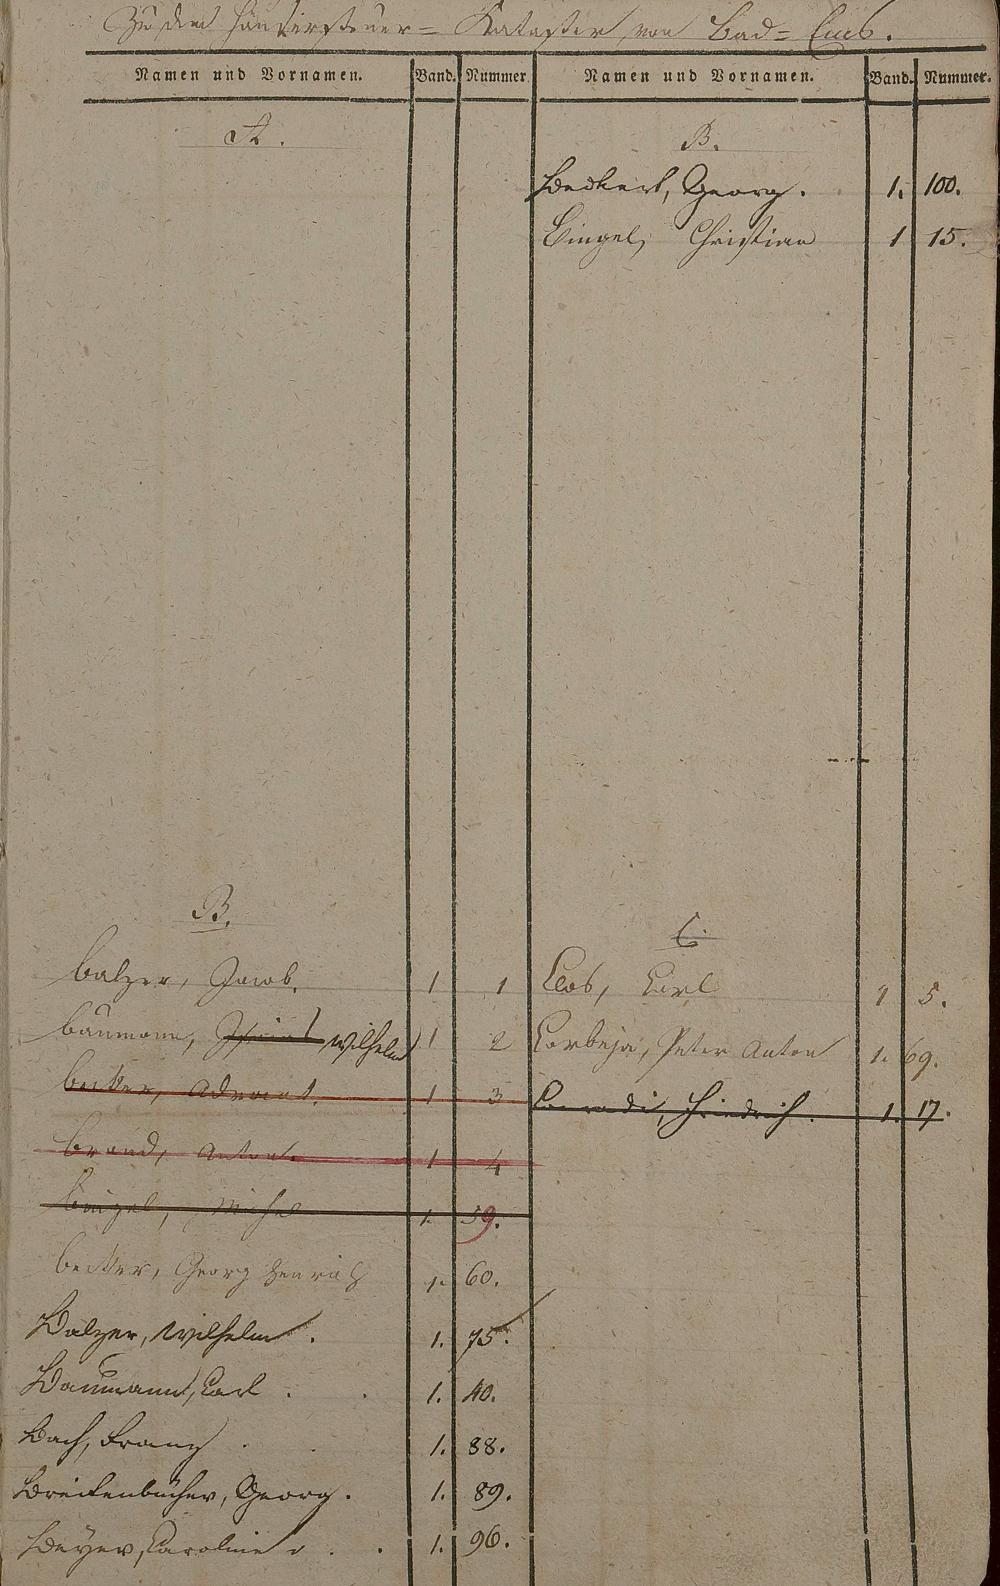 Zu dem Häusersteuer= Kataster von Bad=Ems.
Namen und Vornamen. Band. Nummer.
A.
B.
Balzer, Jacob. 1 1
Baumann, Wilhelm 1 2
Becker, 1 3
Brand, Anton. 1 4
Bingel, Michel 1. 59.
Becker, Georg Henrich 1. 60.
Balzer, Wilhelm. 1. 75.
Baumann, Carl. 1. 40.
Bach, Franz. 1. 88.
Breitenbücher, Georg. 1. 89.
Beyer, Caroline 1. 96.
Namen und Vornamen. Band. Nummer.
B.
Beckert, Georg. 1. 100.
Bingel, Christian 1 15.
C.
Clos, Carl 1 5.
Corbeja, Peter Anton 1. 69.
Conradi, Friedrich. 1. 17.